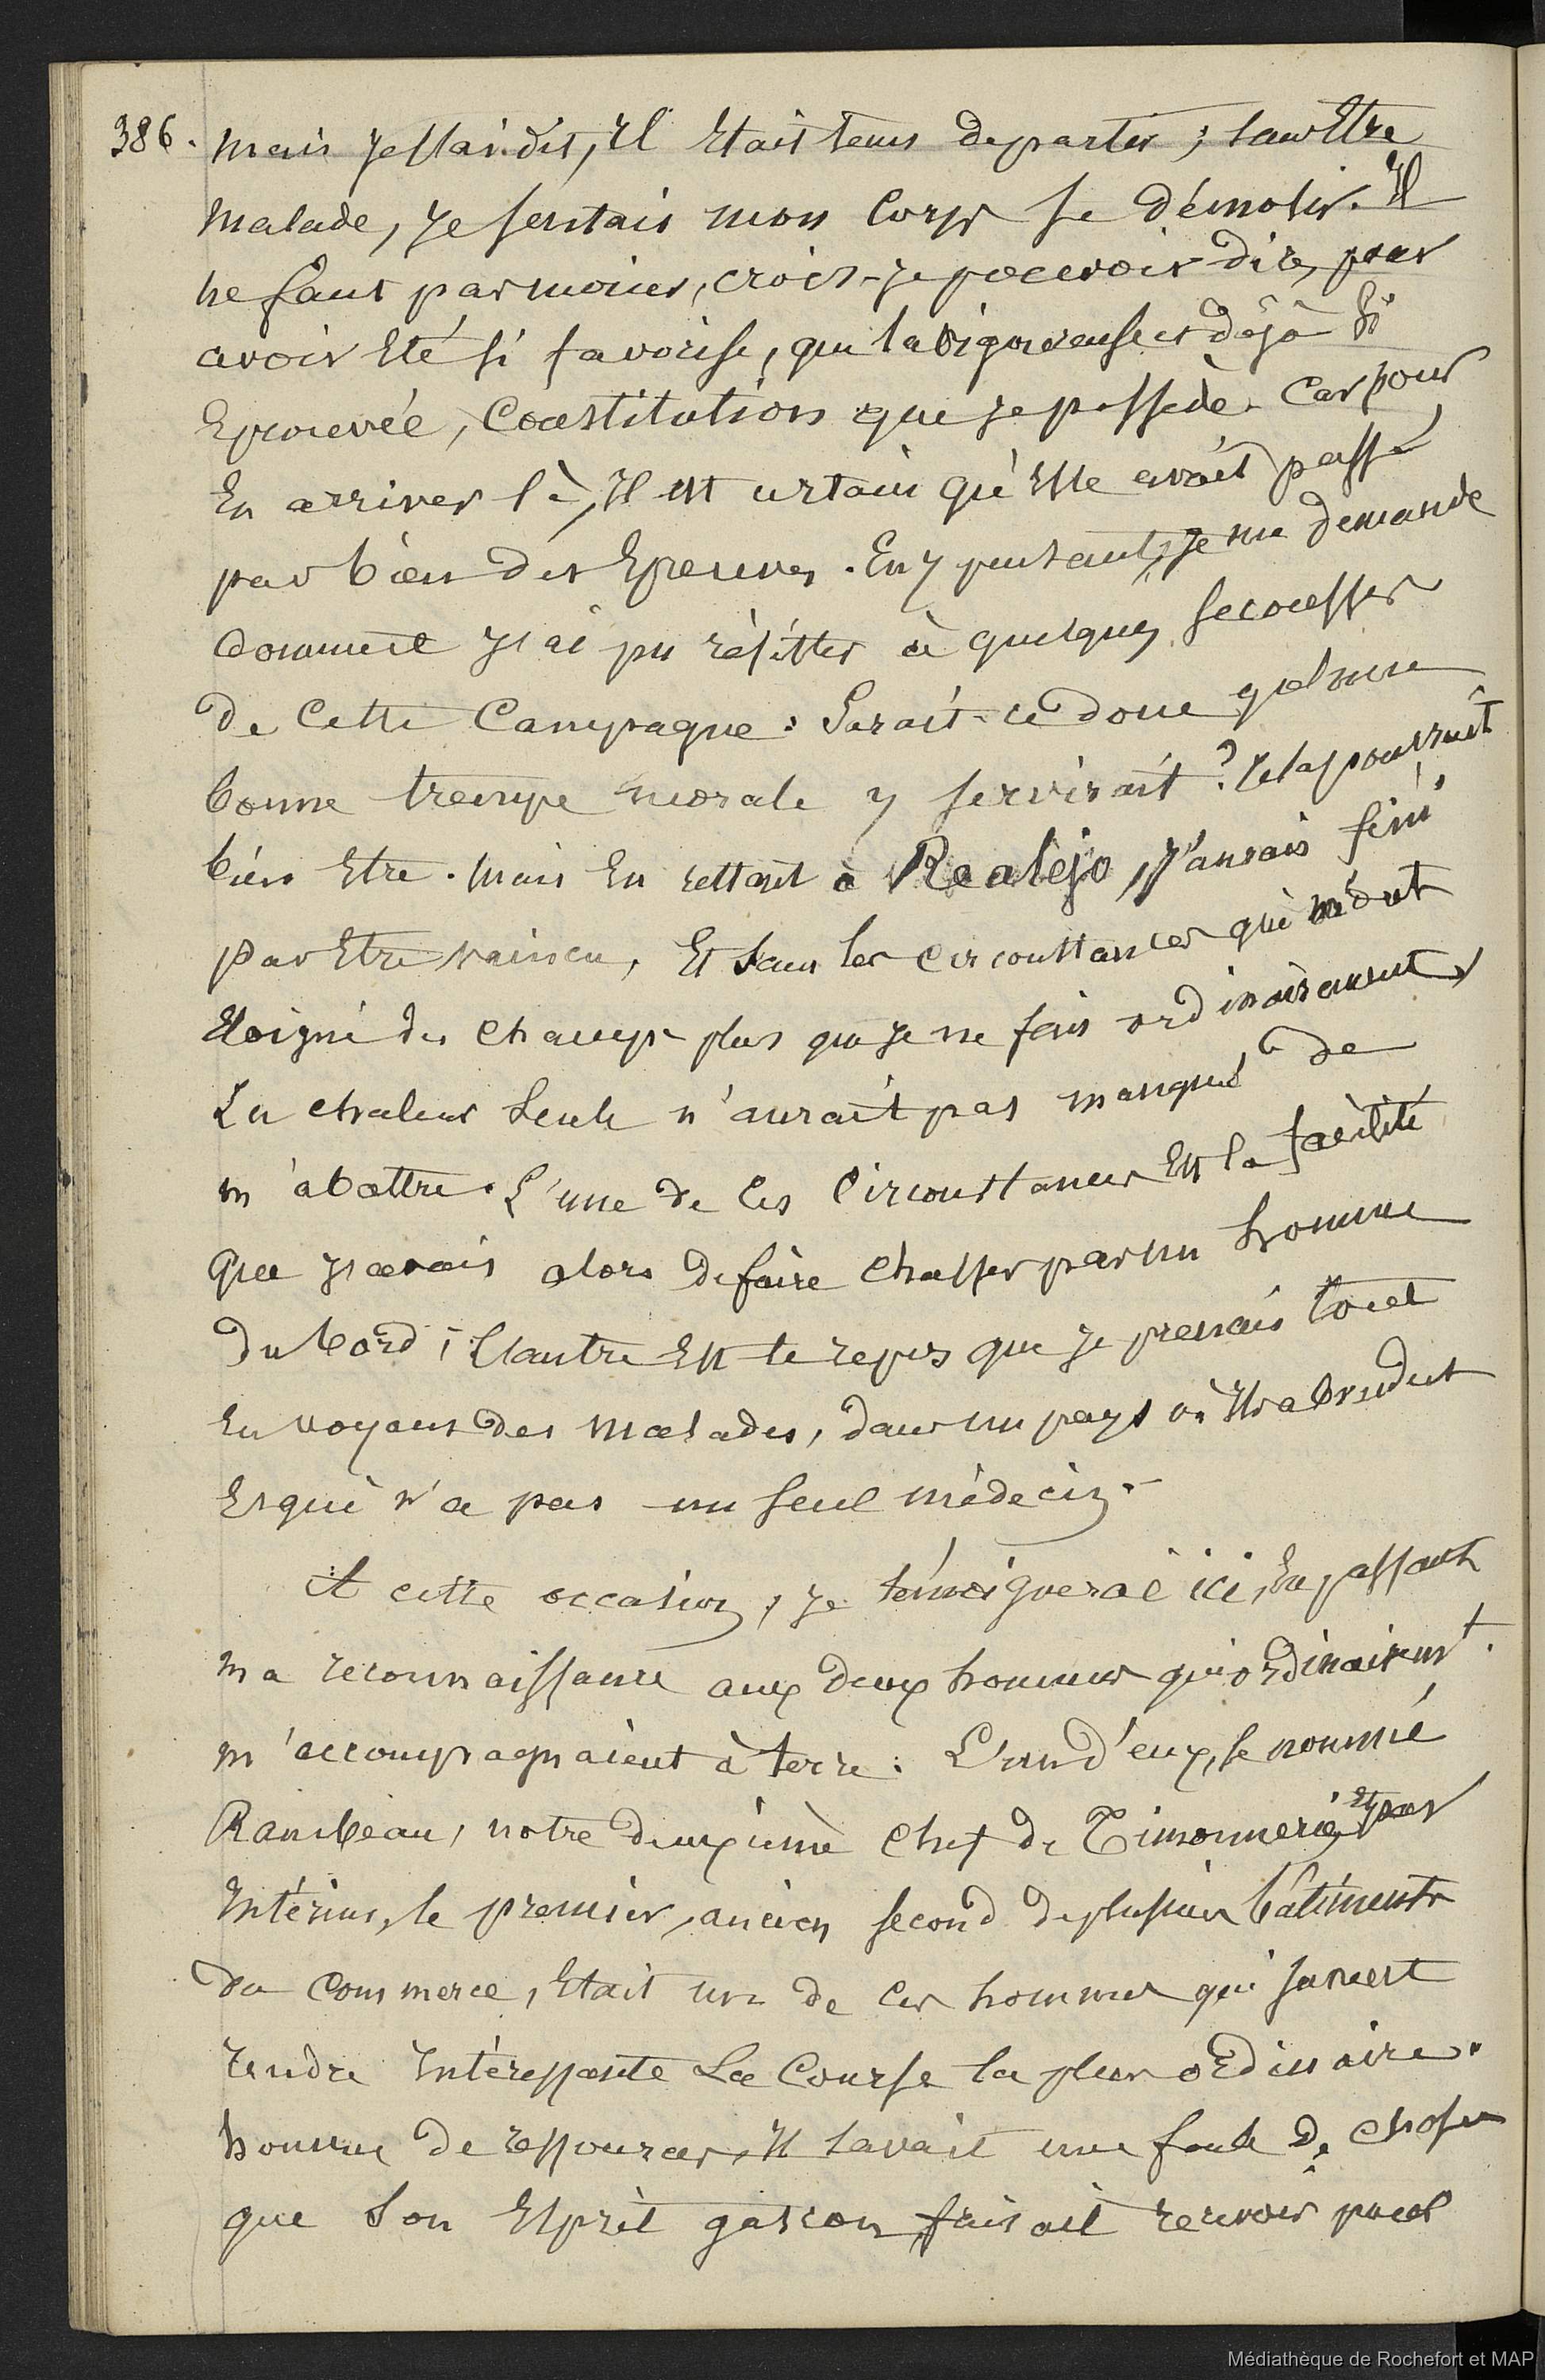 386. Mais je l'ai dit, Il Etait tems de partir; sans Etre
malade, je sentais mon corps se démolir. Il
ne faut pas moins, crois-je pouvoir dire, pour
avoir Eté si favorisé, que la vigoureuse et déjà si
Eprouvée, Constitution que je possède. Car pour
En arriver là, Il Est certain qu'Elle avait passé
par bien des Epreuves. En y pensant, je me demande
comment j'ai pu résister à quelques secousses
de cette Campagne: Serait-ce donc qu'une
bonne trempe morale y servirait? Cela pourrait
bien Etre. Mais En restant à Realejo, j'aurais fini
par Etre vaincu, Et sans les circonstances qui m'ont
Eloigné des champs plus que je ne fais ordinairement,
La chaleur seule n'aurait pas manqué de
m'abattre. L'une de ces circonstances Est la facilité
que j'avais alors de faire chasser par un homme
du bord; l'autre Est le repos que je prenais tout
En voyant des malades, dans un pays où Ils abondent
Et qui n'a pas un seul médecin.
A cette occasion, je témoignerai ici, En passant
ma reconnaissance aux deux hommes qui ordinairemt.
m'accompagnaient à terre. L'un d'eux, le nommé
Rambeau, notre deuxième chef de Timonnerie, Et par
Intérim, le premier, ancien second de plusieurs bâtiments
du commerce, Etait un de ces hommes qui savent
rendre Intéressante La Course la plus ordinaire.
homme de ressources, Il savait une foule de choses
que son Esprit gascon faisait